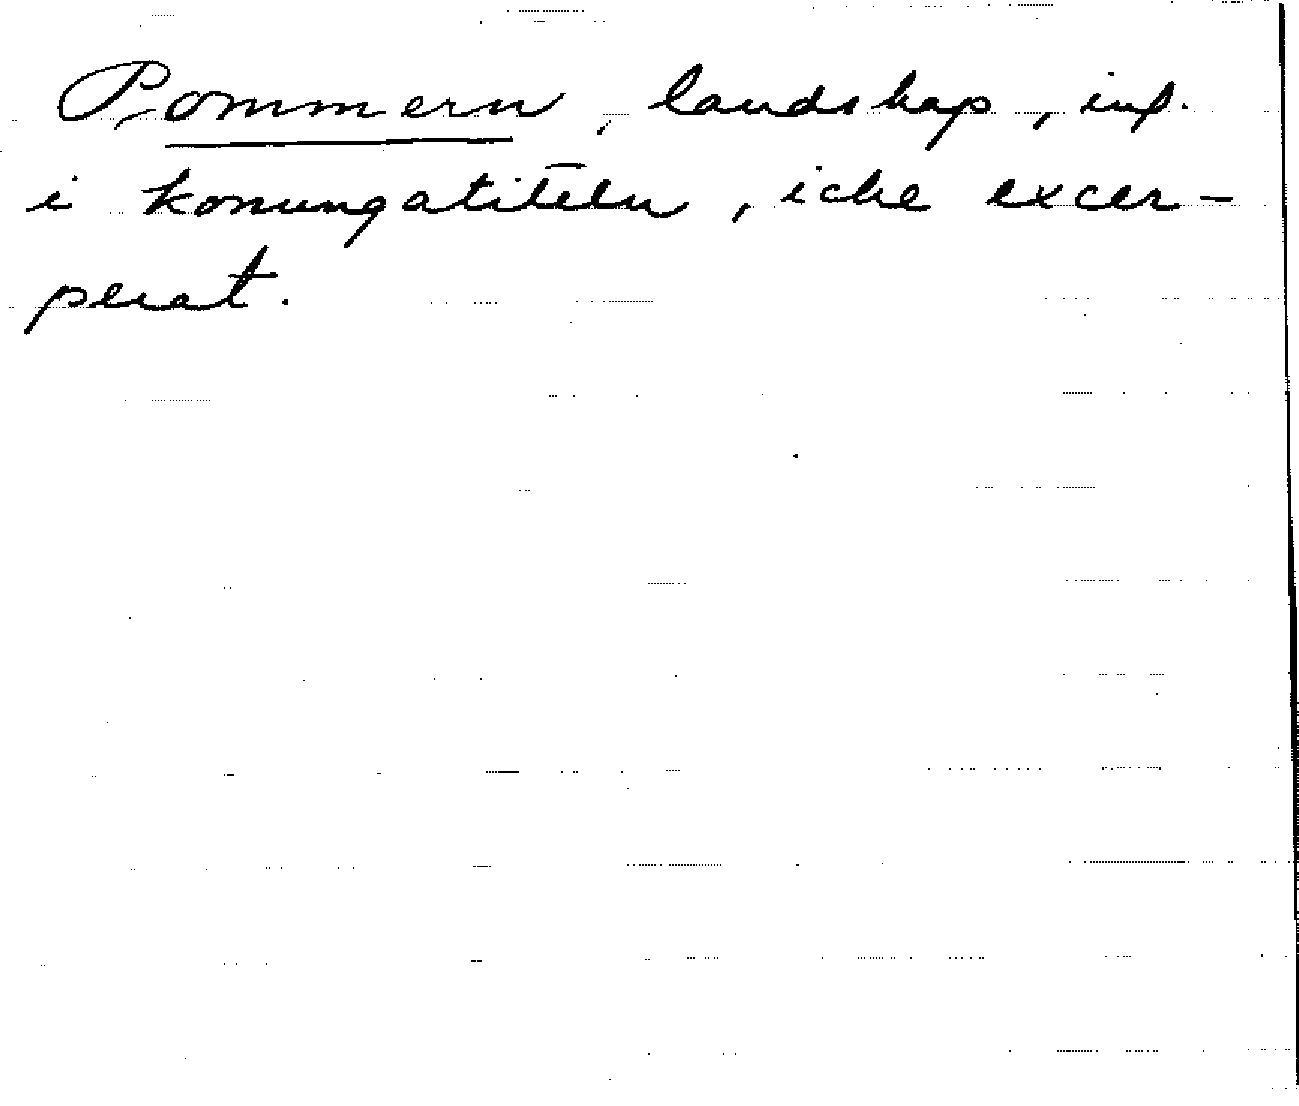 Pommern, landskap, inf.
i konungatiteln, icke excer-
perat.